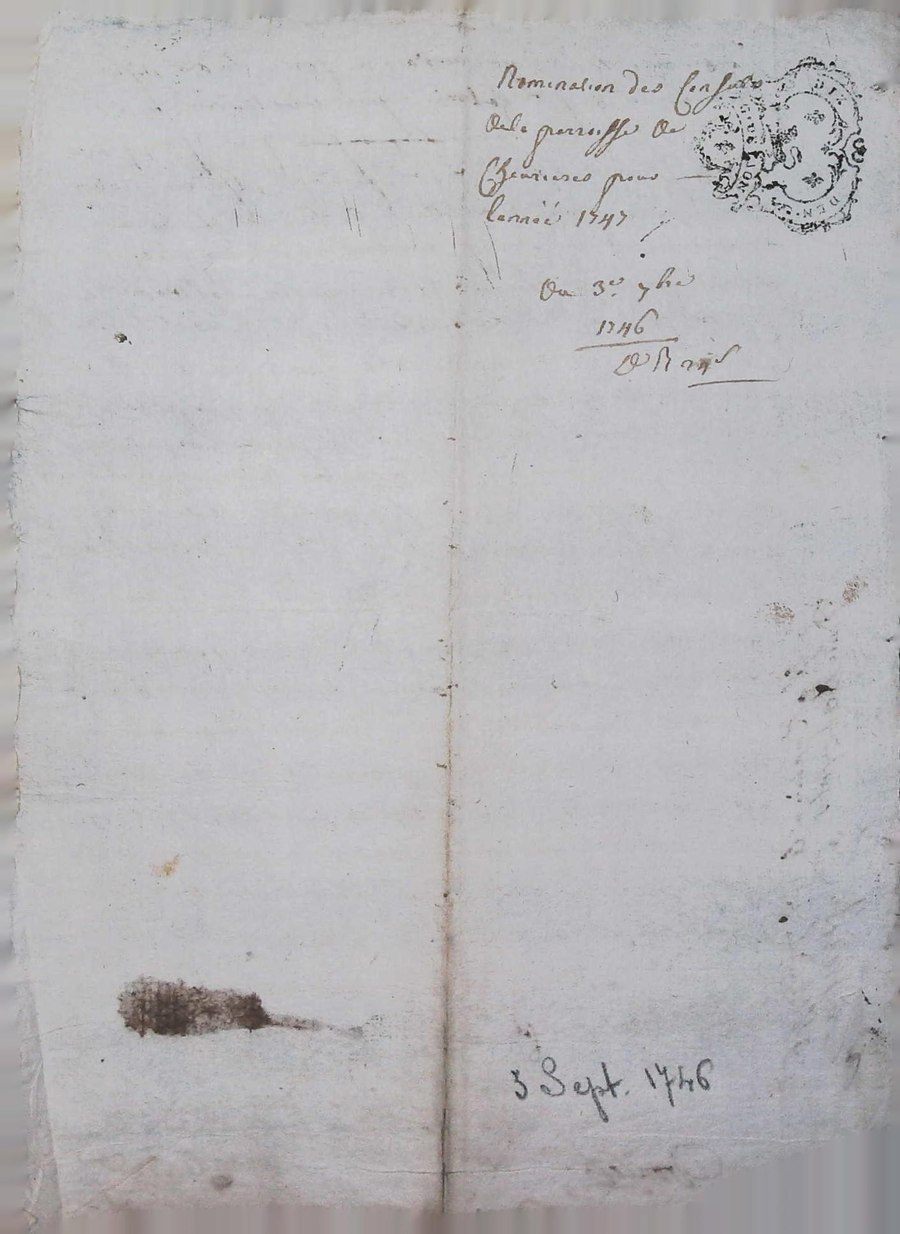 Nomination des Consuls
de la parroisse de
Chevrieres pour
lannéé 1747
Du 3e. 7bre
1746
DIX
DEN.
3 Sept. 1746